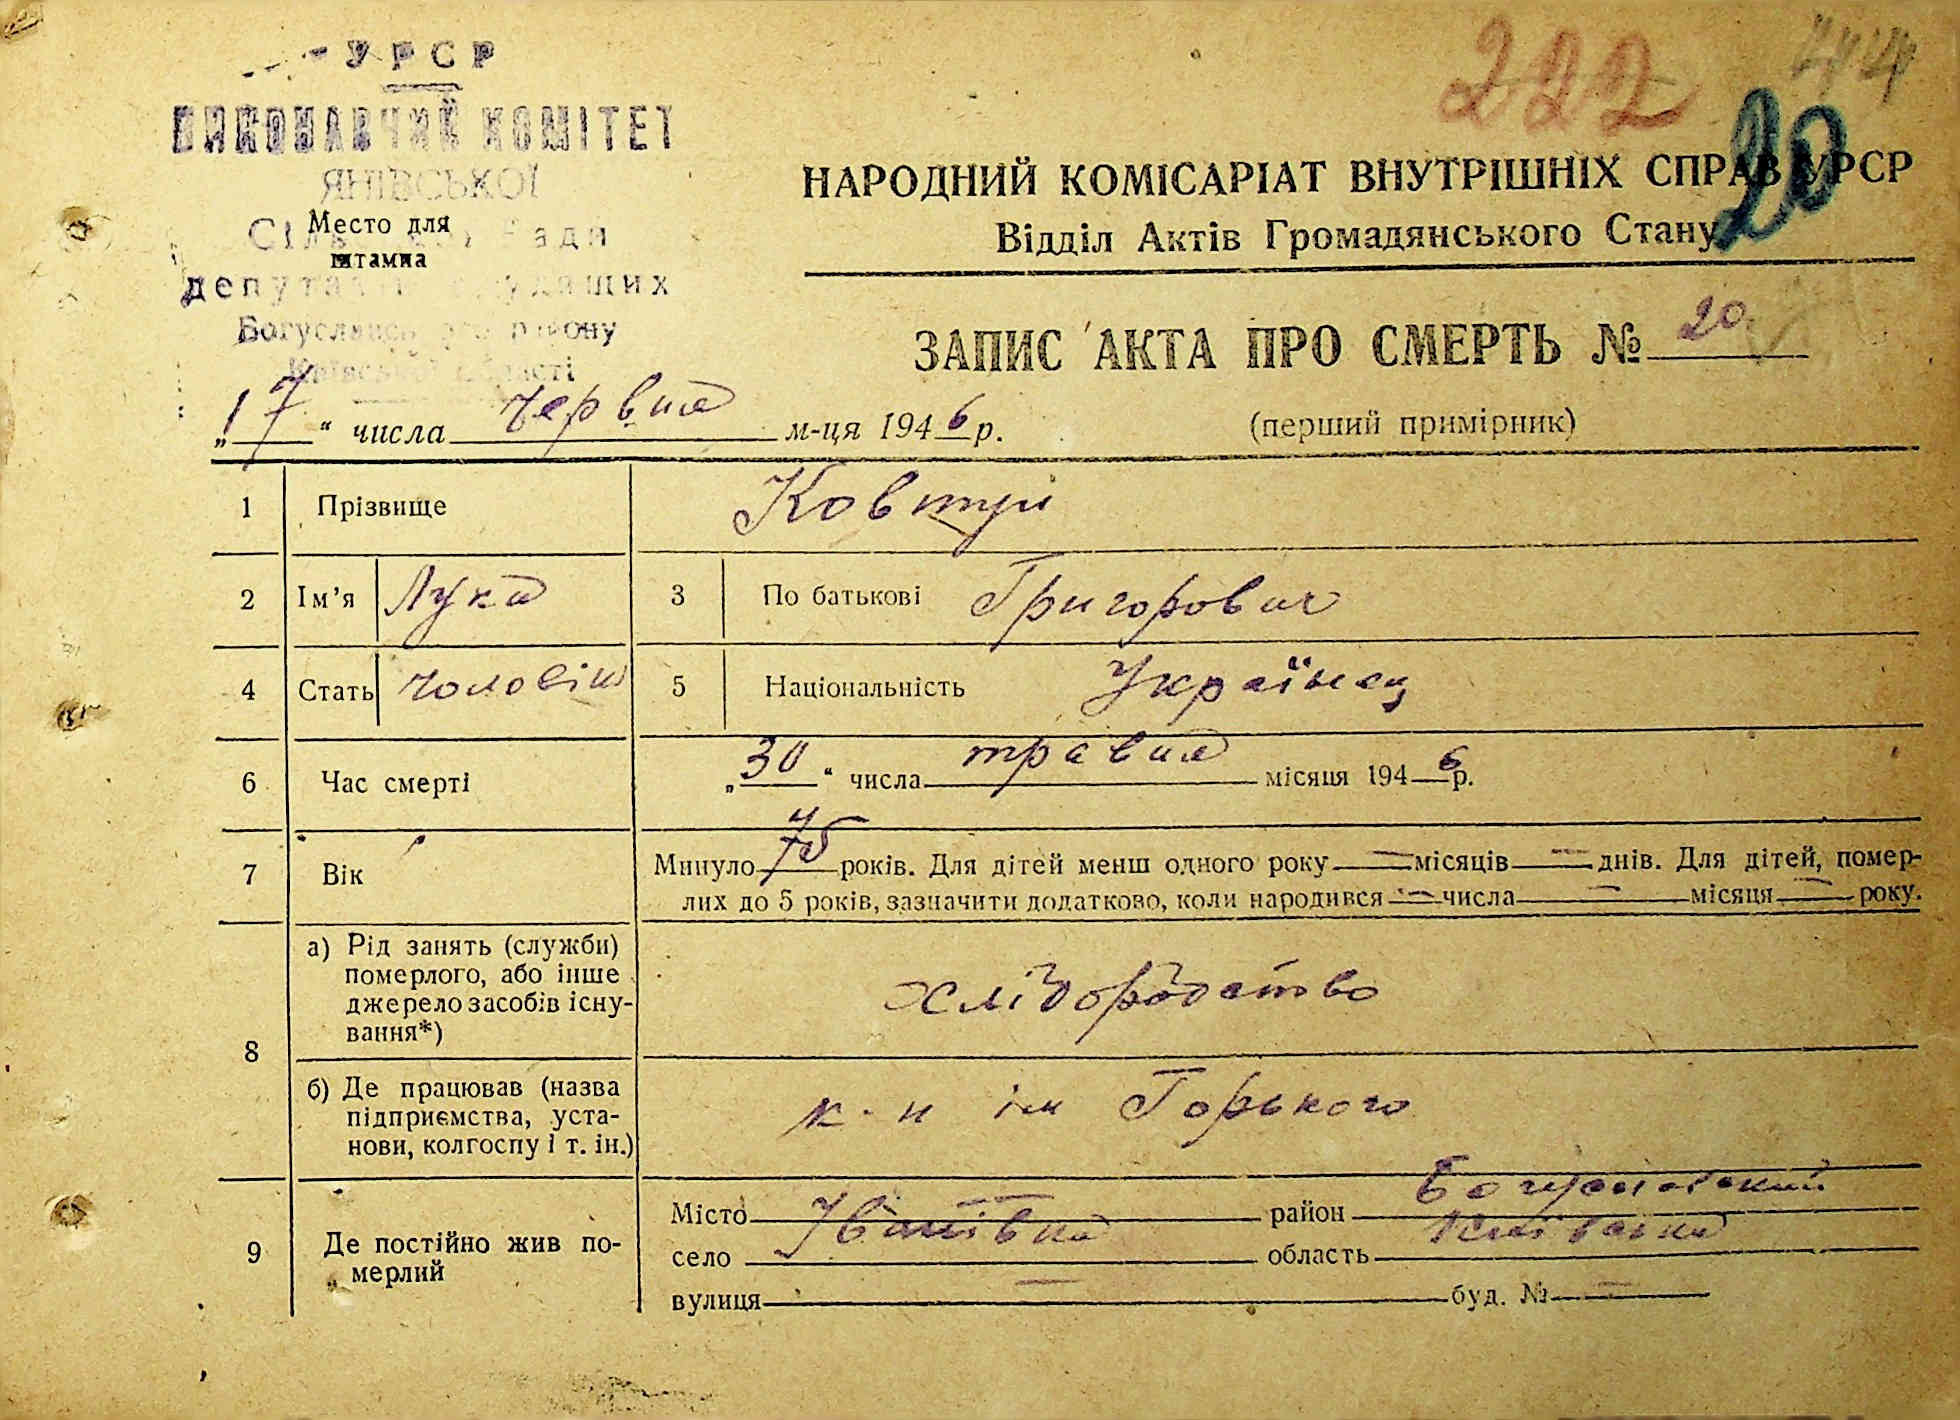 УРСР
ВИКОНАВЧИЙ КОМІТЕТ
ЯНІВСЬКОЇ
Место для
штампа
депутатів трудящих
Богуславського району
Київської області
222
20
НАРОДНИЙ КОМІСАРІАТ ВНУТРІШНІХ СПРАВ УРСР
Відділ Актів Громадянського Стану
ЗАПИС АКТА ПРО СМЕРТЬ № 20
„17“ числа червня м-ця 1946 р.
(перший примірник)
1 Прізвище Ковтун
2 Ім’я Лука 3 По батькові Григорович
4 Стать чоловік 5 Національність Українец
6 Час смерті „30“ числа травня місяця 1946 р.
7 Вік Минуло 75 років. Для дітей менш одного року — місяців — днів. Для дітей, помер-
лих до 5 років, зазначити додатково, коли народився — числа — місяця — року.
8 а) Рід занять (служби)
померлого, або інше
джерело засобів існу-
вання*)
хліборобство
б) Де працював (назва
підприємства, уста-
нови, колгоспу і т. ін.)
к-п ім Горького
9 Де постійно жив по-
мерлий
Місто район Богуславский
село Іванівка область Київська
вулиця — буд. № —